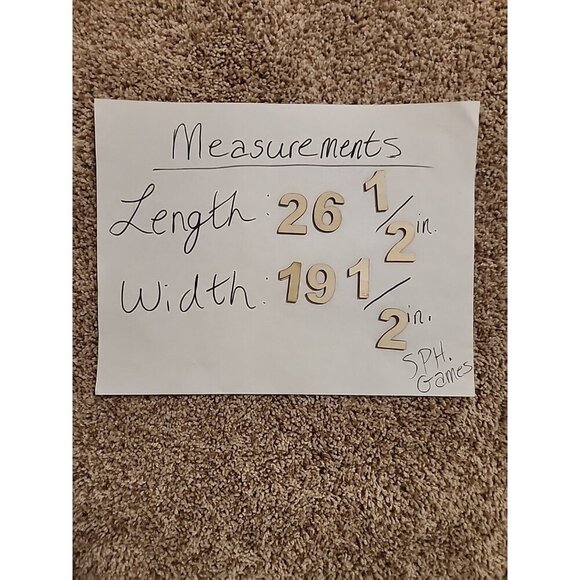 Measurements
Length: 26 1/2 in.
Width: 19 1/2 in.
S.P.H.
Games